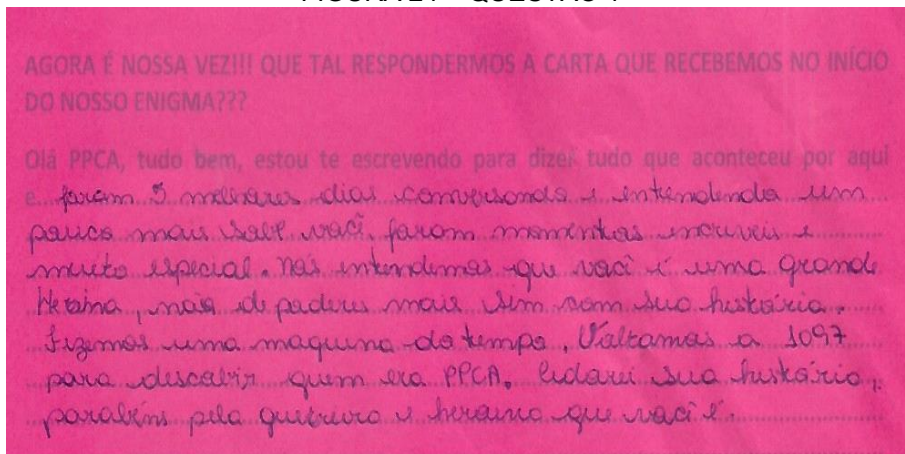 AGORA É NOSSA VEZ!!! QUE TAL RESPONDERMOS A CARTA QUE RECEBEMOS NO INÍCIO
DO NOSSO ENIGMA???
Olá PPCA, tudo bem, estou te escrevendo para dizer tudo que aconteceu por aqui
e foram 5 melhores dias conversando e entendendo um
pouco mais sobre você. foram momentos incriveis e
muito especial. nós entendemos que você é uma grande
Heroina, não de poderes mais sim com sua história.
Fizemos uma maquina do tempo, Voltamos a 1097
para descobrir quem era PPCA. Adorei sua história,
parabéns pela guerreira e heroina que você é.